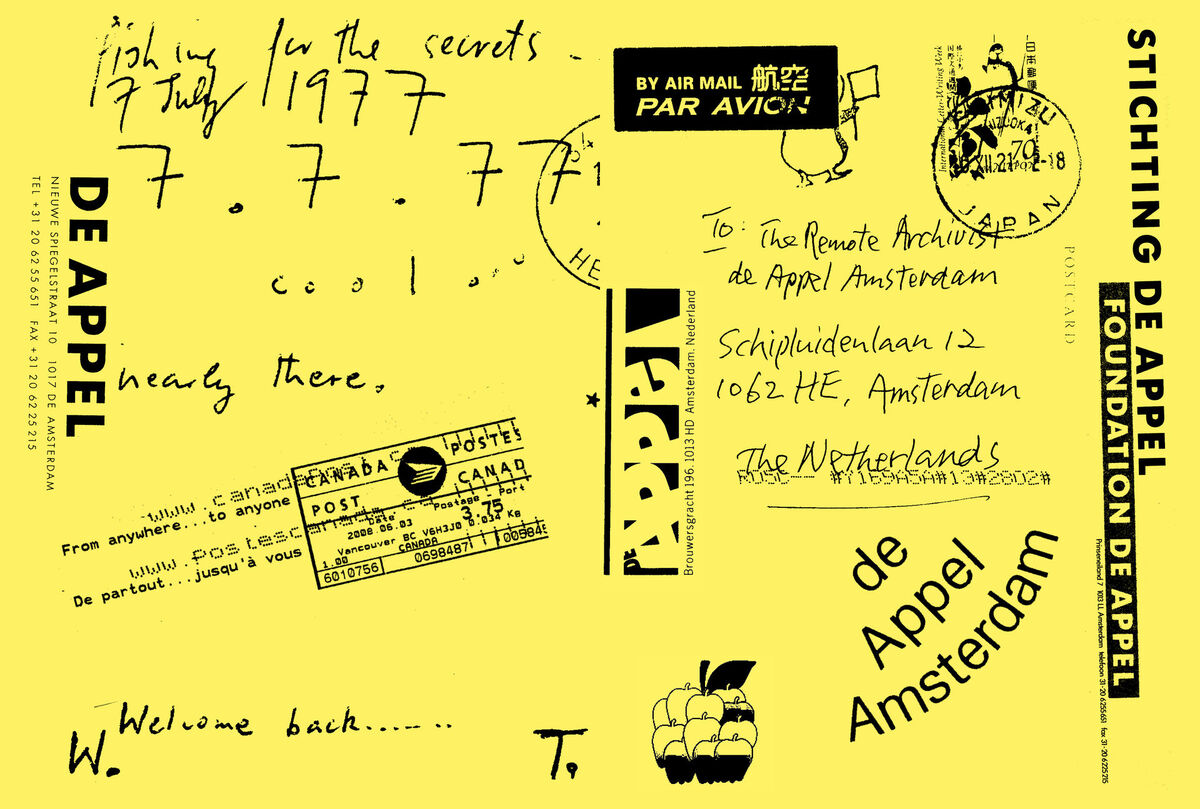 fishing for the secrets
7 July 1977
7. 7. 77
cool...
nearly there.
DE APPEL
NIEUWE SPIEGELSTRAAT 10 1017 DE AMSTERDAM
TEL +31 20 62 55 651 FAX +31 20 62 25 215
HE
www.canadapost
From anywhere...to anyone
www.postescanada
De partout...jusqu'à vous
CANADA POSTES
POST CANAD
Date Postage - Port
2008.06.03 3.75
Vancouver BC V6H3J0 0.034 KG
1.00 CANADA
6010756 0698487 005845
Welcome back.......
W. T.
BY AIR MAIL 航空
PAR AVION
日本郵便
70
XII.21
-18
JAPAN
To: The Remote Archivist
de Appel Amsterdam
Schipluidenlaan 12
1062 HE, Amsterdam
The Netherlands
POSTCARD
DE APPEL
Brouwersgracht 196. 1013 HD Amsterdam. Nederland
de
Appel
Amsterdam
STICHTING DE APPEL
FOUNDATION DE APPEL
Prinseneiland 7 1013 LL Amsterdam telefoon 31-20 6255651 fax 31-20 6225215